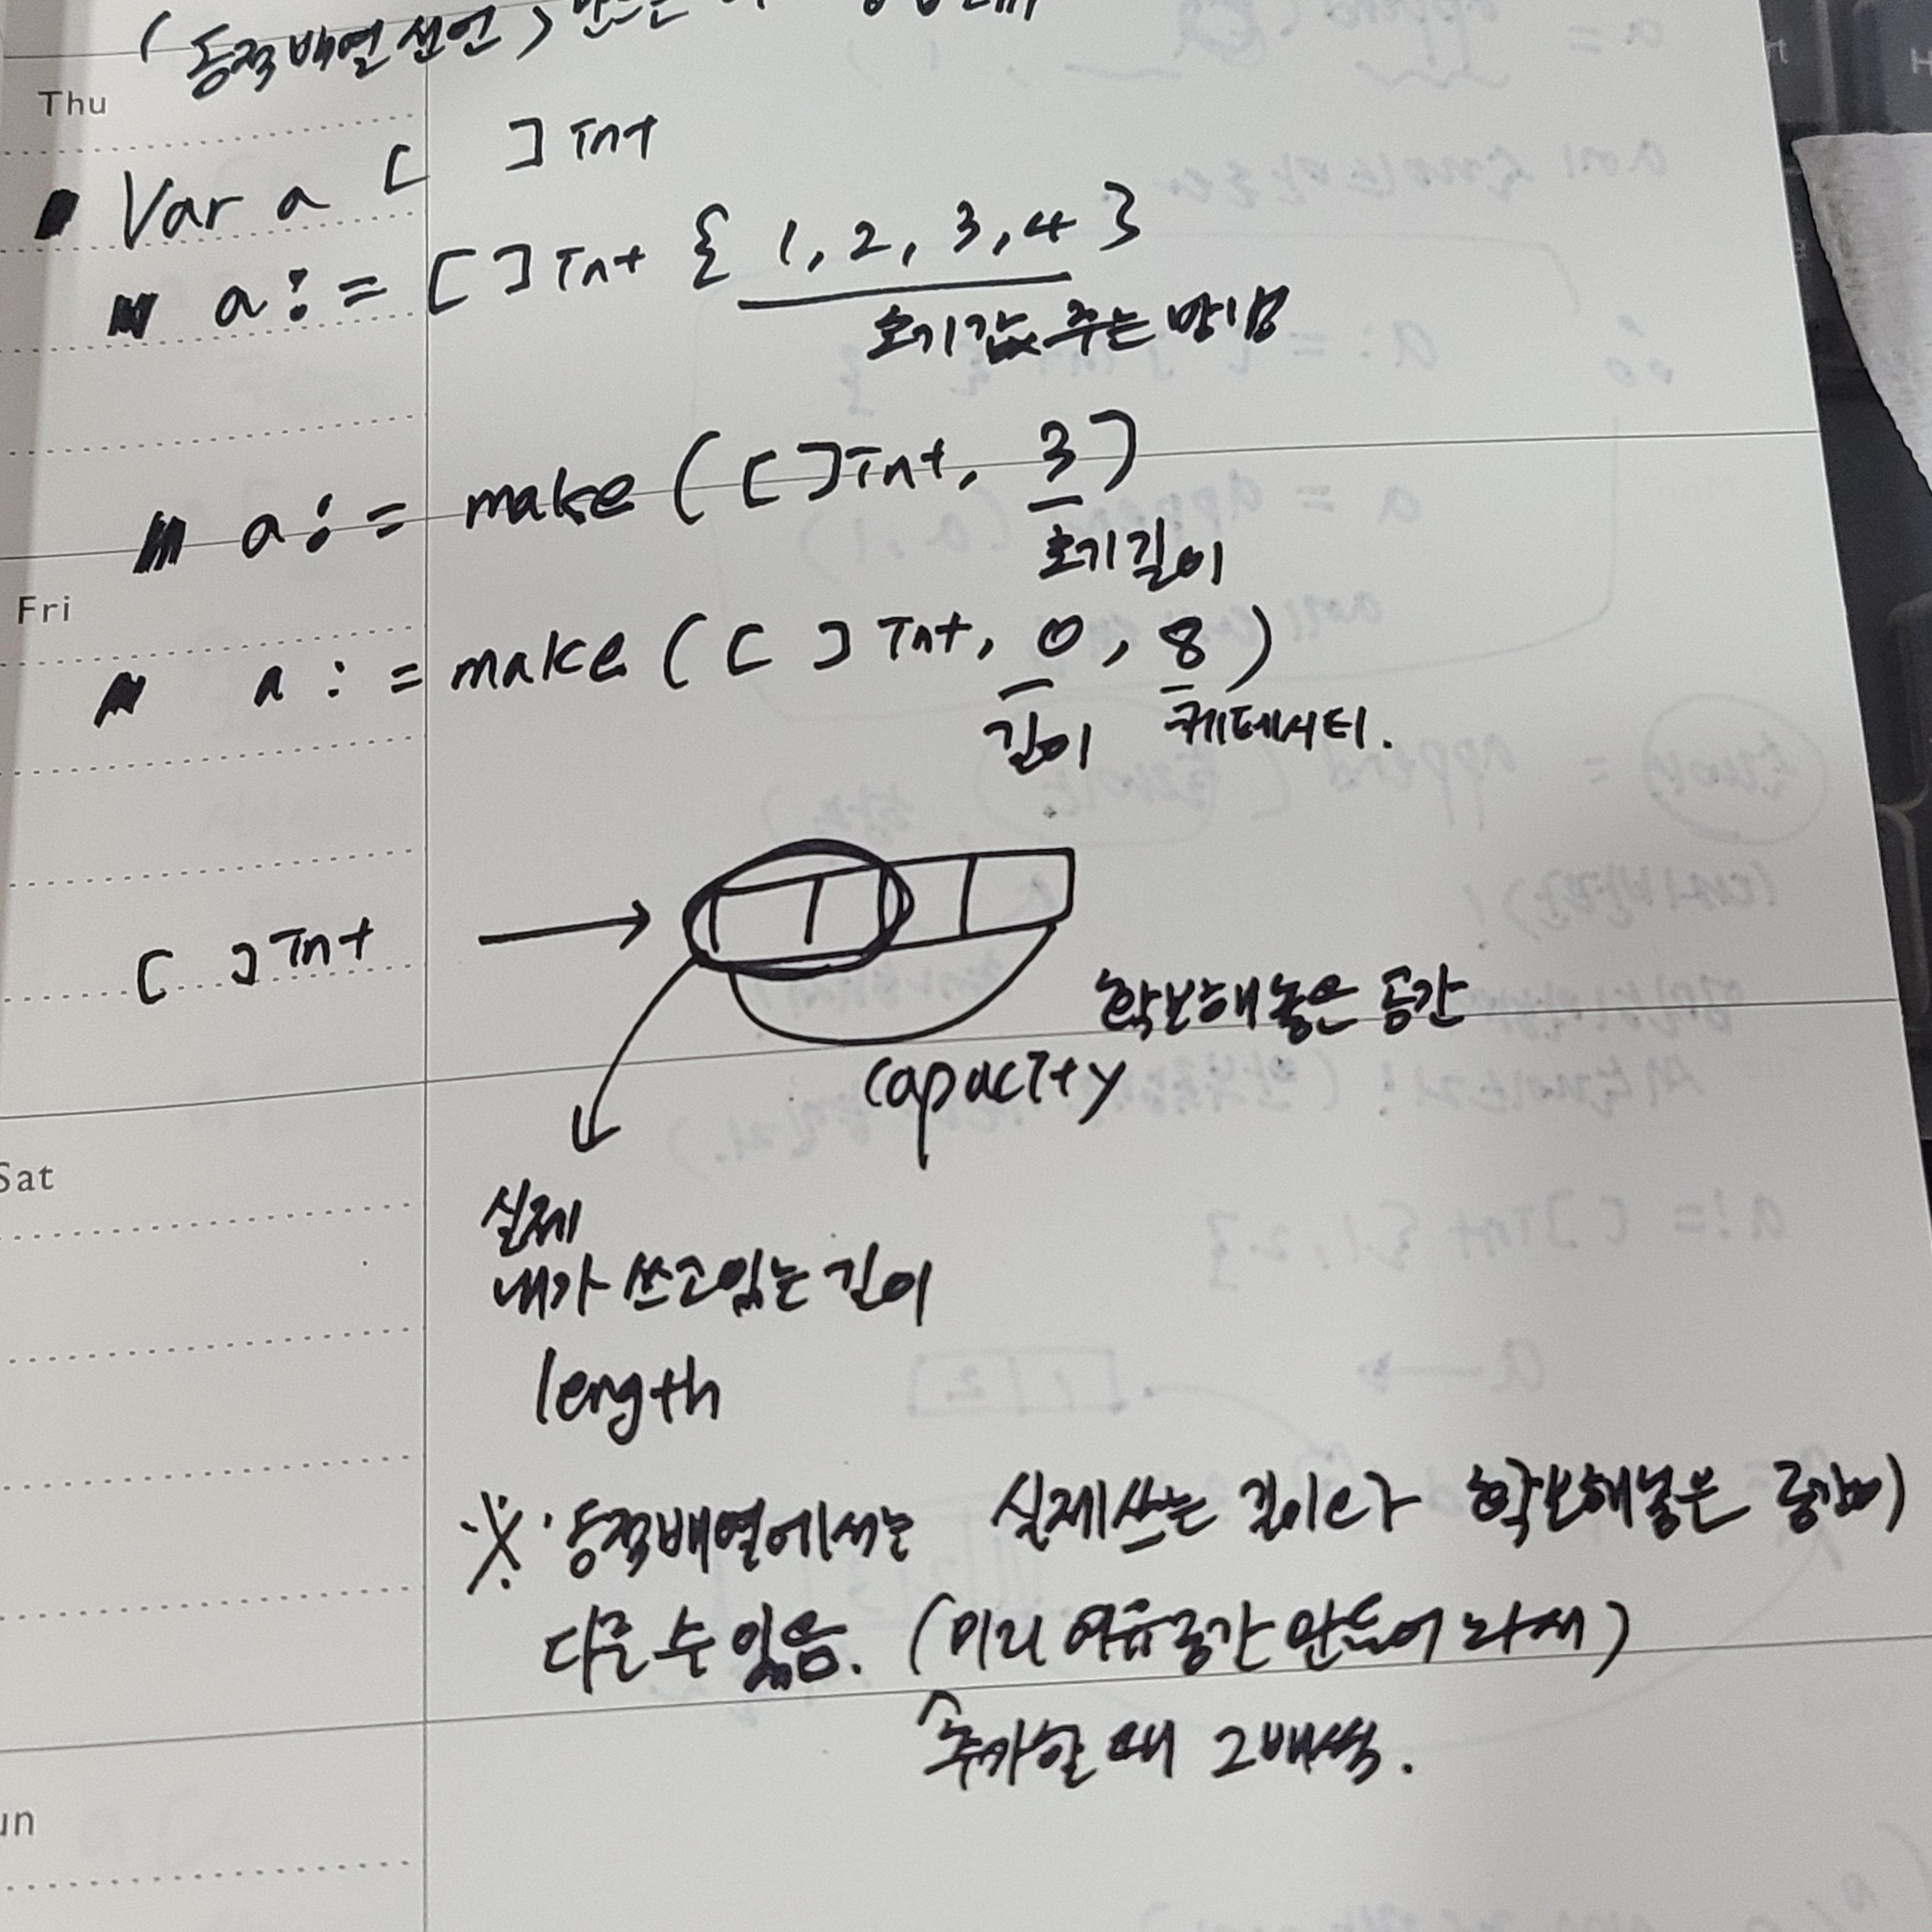 (동적배열 선언)
Thu
Var a [ ] int
a := [ ] int { 1, 2, 3, 4 }
초기값 주는 방법
a := make ( [ ] int, 3 )
초기길이
Fri
a := make ( [ ] int, 0, 8 )
길이 케페시티.
[ ] int
확보해 놓은 공간
capacity
Sat
실제
내가 쓰고있는 길이
length
※ 동적배열에서는 실제 쓰는 길이랑 확보해놓은 공간이
다를 수 있음. (미리 여유공간 만들어 놔서)
추가할 때 2배씩.
un